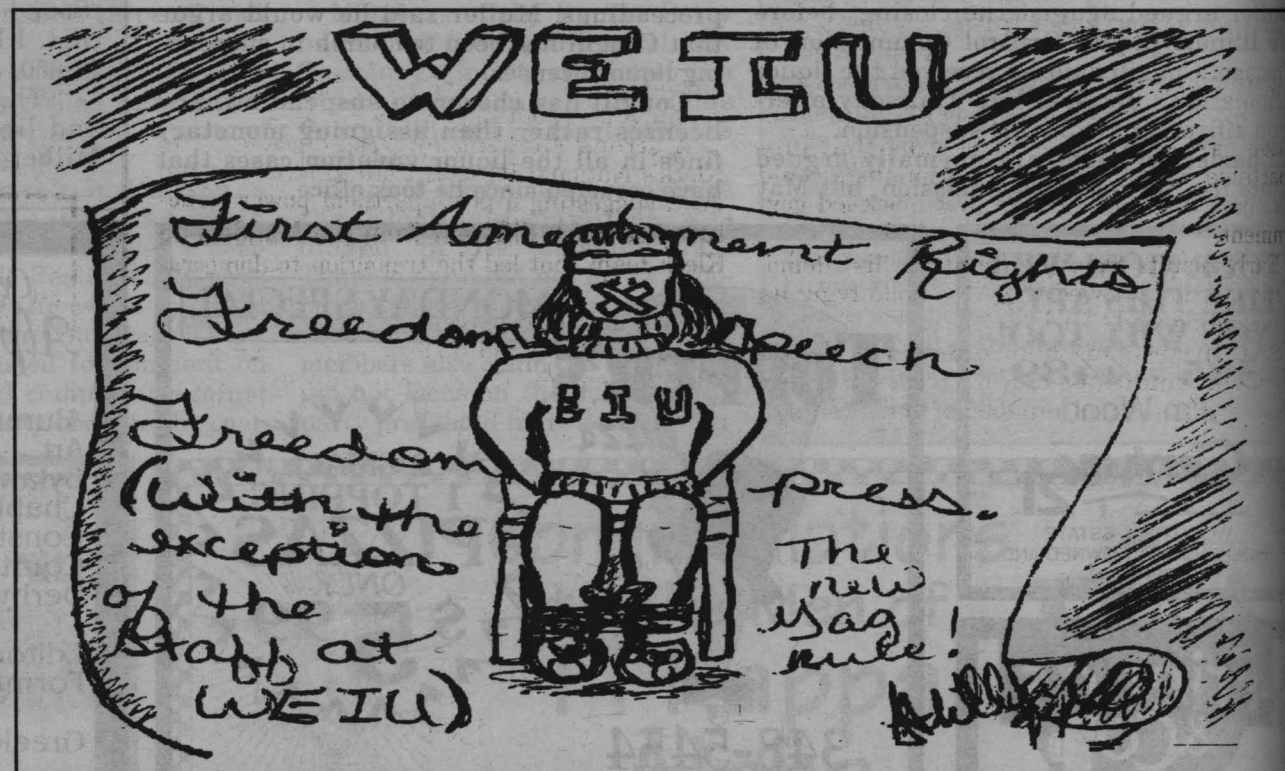 WEIU
First Amendment Rights
Freedom Speech
EIU
Freedom press.
(with the
exception
of the
staff at
WEIU)
The
new
gag
rule!